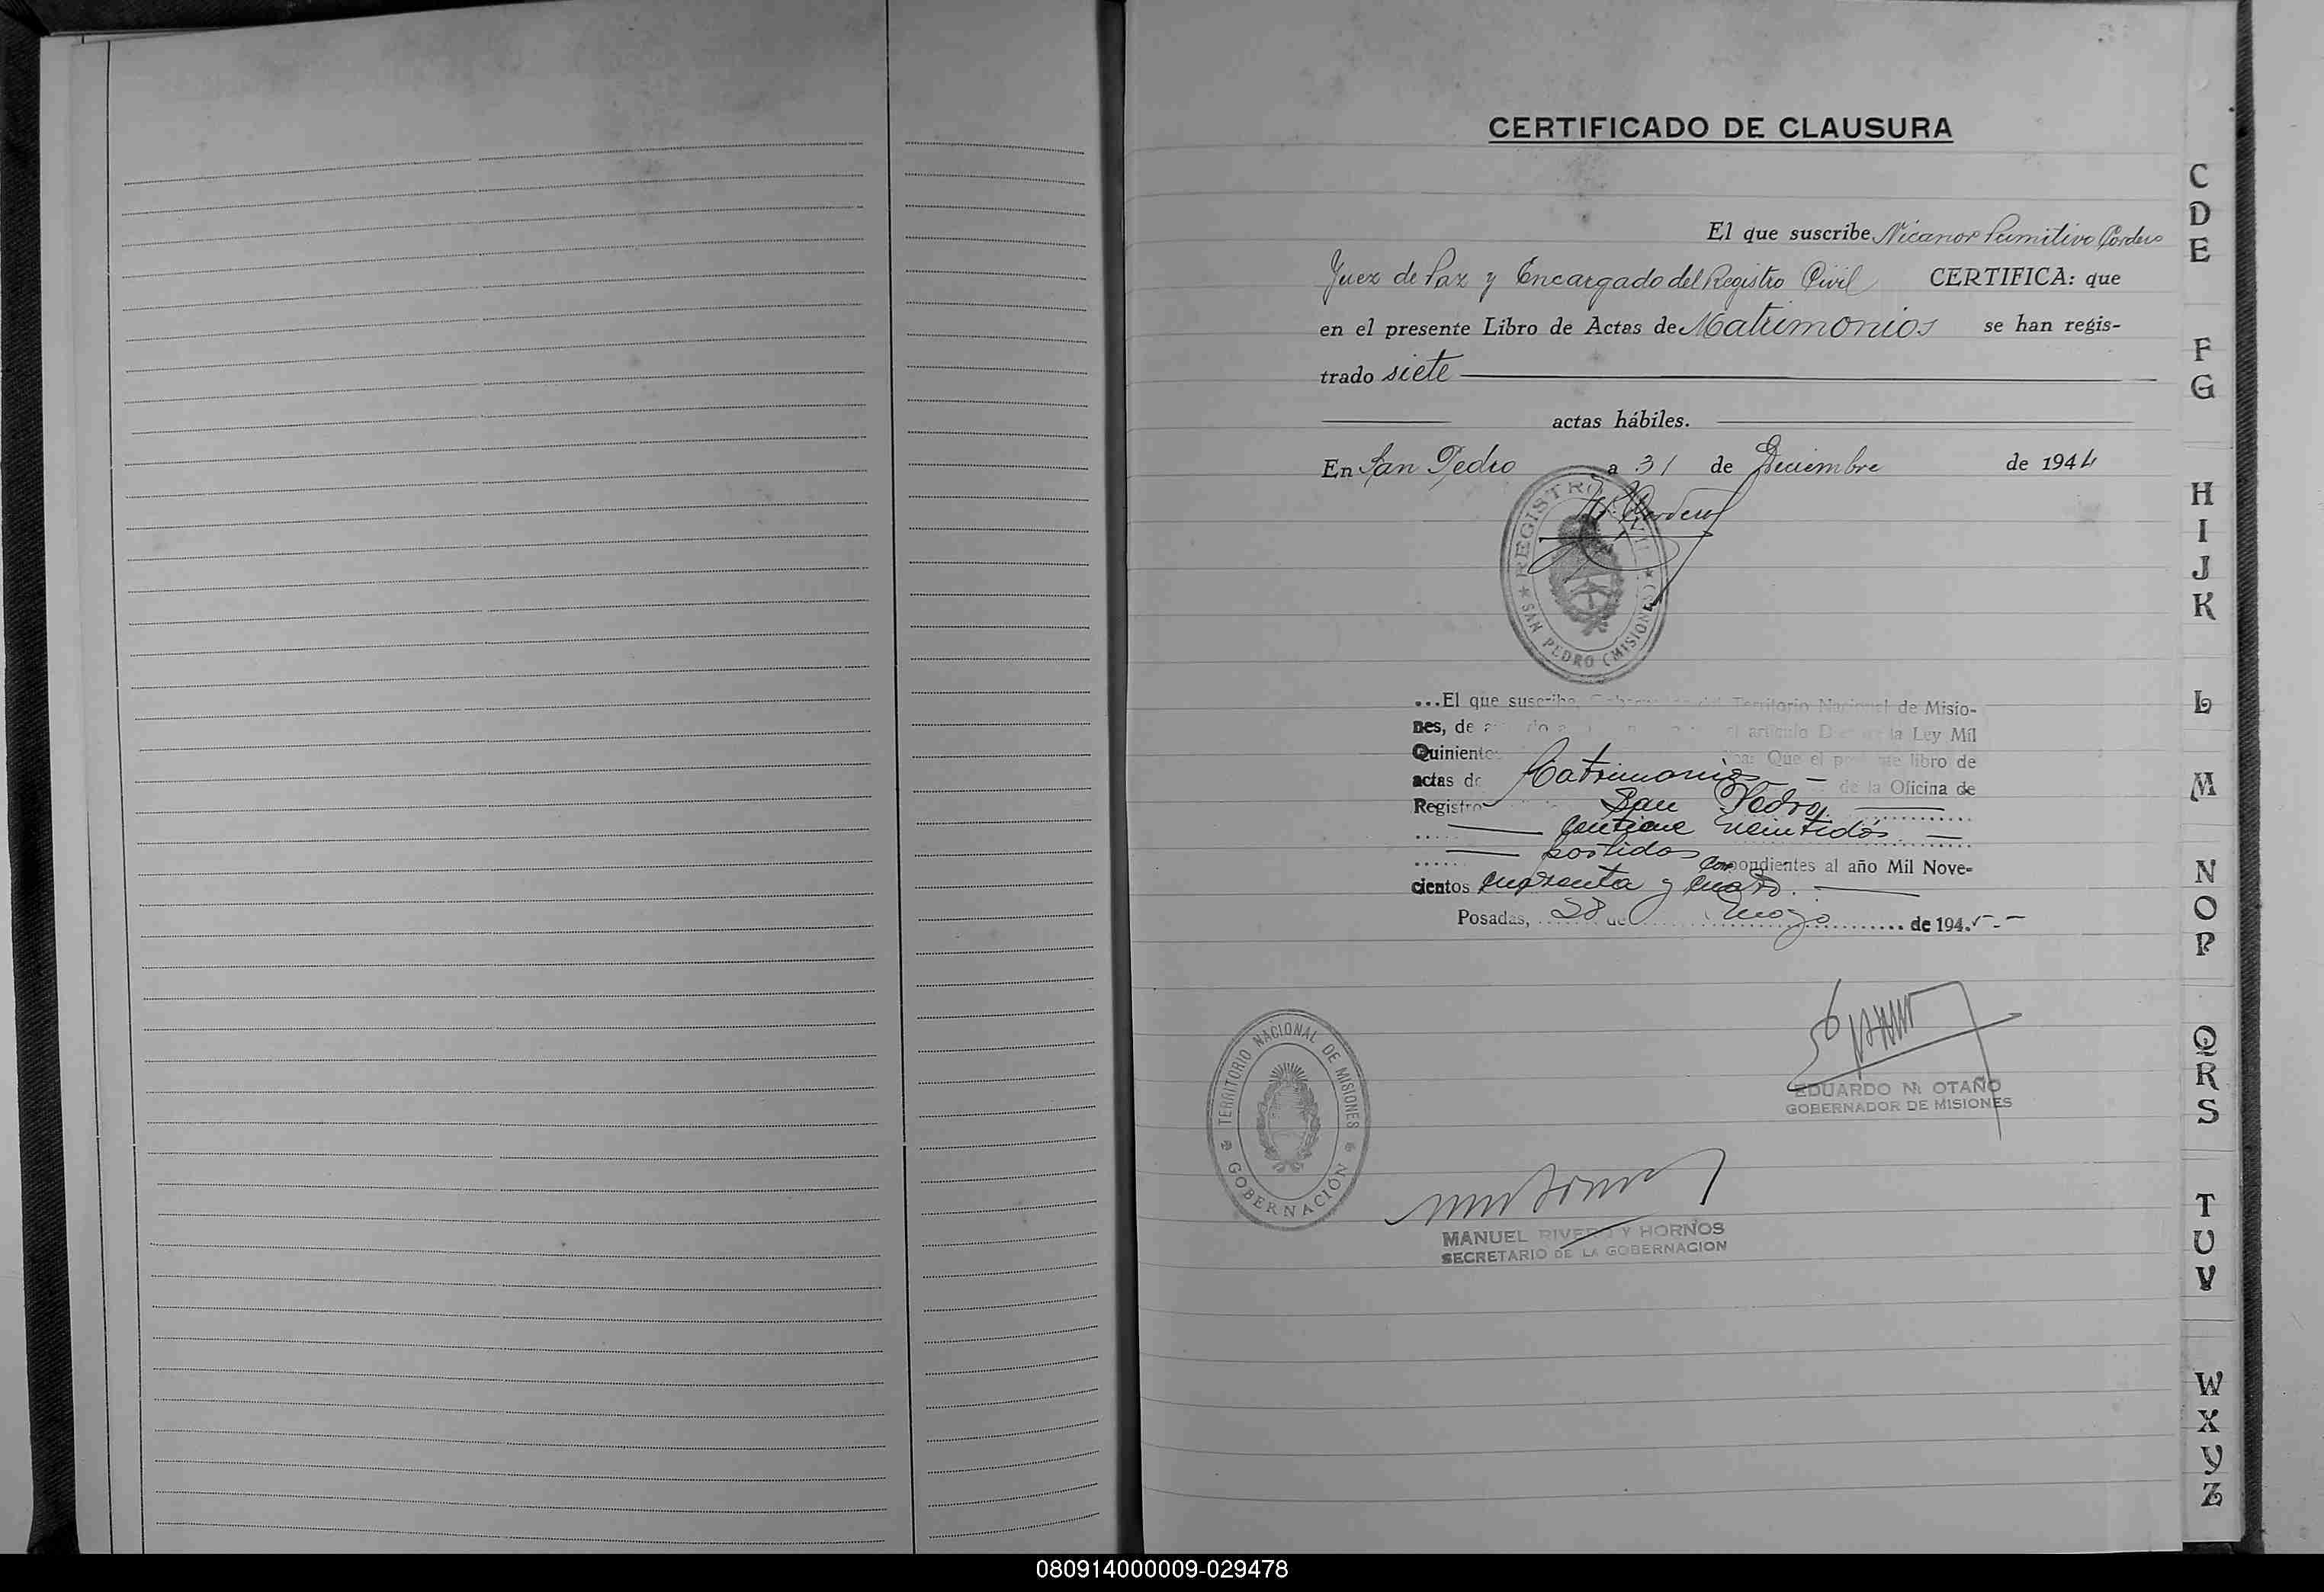 CERTIFICADO DE CLAUSURA
El que suscribe Nicanor Primitivo Cordero
Juez de Paz y Encargado del Registro Civil CERTIFICA: que
en el presente Libro de Actas de Matrimonios se han regis-
trado siete
actas hábiles.
En San Pedro a 31 de Diciembre de 1944
REGISTRO CIVIL
SAN PEDRO (MISIONES)
...El que suscribe Territorio Nacional de Misio-
nes, de artículo la Ley Mil
Que el libro de
actas de Matrimonios de la Oficina de
Registro San Pedro
contiene veintidós
partidas correspondientes al año Mil Nove-
cientos cuarenta y cuatro.
Posadas, 28 de Mayo de 1945
TERRITORIO NACIONAL DE MISIONES
GOBERNACIÓN
EDUARDO M. OTAÑO
GOBERNADOR DE MISIONES
MANUEL RIVERO Y HORNOS
SECRETARIO DE LA GOBERNACION
C
D
E
F
G
H
I
J
K
L
M
N
O
P
Q
R
S
T
U
V
W
X
Y
Z
080914000009-029478